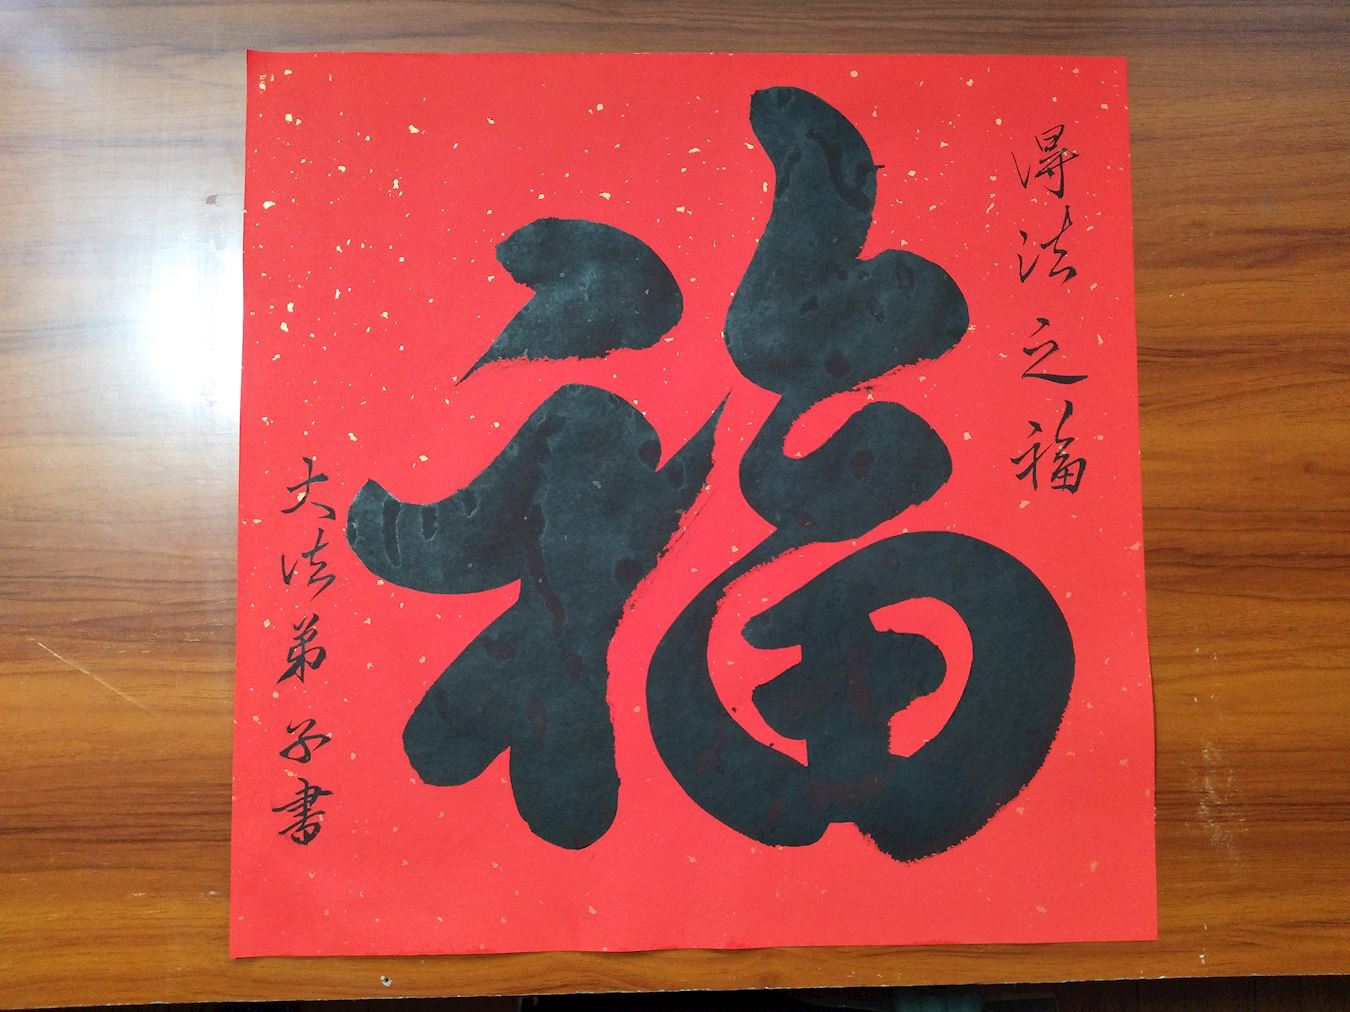 得法之福
福
大法弟子書